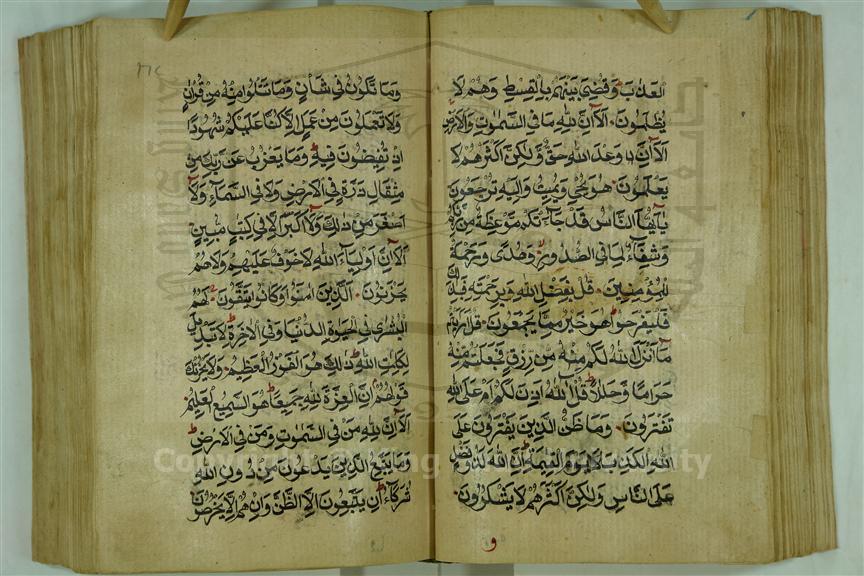 العذاب وقضى بينهم بالقسط وهم لا
يظلمون الا ان لله ما في السموت والارض
الا ان وعد الله حق ولكن اكثرهم لا
يعلمون هو يحي ويميت واليه ترجعون
يايها الناس قد جاءتكم موعظة من ربكم
وشفاء لما في الصدور وهدى ورحمة
للمؤمنين قل بفضل الله وبرحمته فبذلك
فليفرحوا هو خير مما يجمعون قل ارايتم
ما انزل الله لكم من رزق فجعلتم منه
حراما وحللا قل الله اذن لكم ام على الله
تفترون وما ظن الذين يفترون على
الله الكذب يوم القيمة ان الله لذو فضل
على الناس ولكن اكثرهم لا يشكرون
و
وما تكون في شان وما تتلوا منه من قران
ولا تعملون من عمل الا كنا عليكم شهودا
اذ تفيضون فيه وما يعزب عن ربك من
مثقال ذرة في الارض ولا في السماء ولا
اصغر من ذلك ولا اكبر الا في كتب مبين
الا ان اولياء الله لا خوف عليهم ولا هم
يحزنون الذين امنوا وكانوا يتقون لهم
البشرى في الحيوة الدنيا وفي الاخرة لا تبديل
لكلمت الله ذلك هو الفوز العظيم ولا يحزنك
قولهم ان العزة لله جميعا هو السميع العليم
الا ان لله من في السموت ومن في الارض
وما يتبع الذين يدعون من دون الله
شركاء ان يتبعون الا الظن وان هم الا يخرصون